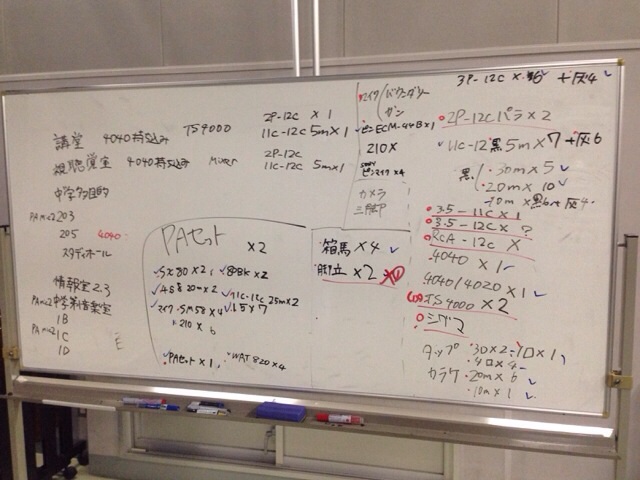 講堂 4040持ち込み TS9000 2P-12C × 1
11C-12C 5m×1
視聴覚室 4040持ち込み 2P-12C
11C-12C 5m×1
中学多目的
PAミニ203
205 4040
スタディホール
情報室2.3
PAミニ2 中学第1音楽室
1B
PAミニ2 1C
1D
PAセット ×2
SX80×2 80BK×2
11C-12C 25m×2
マイク・SM58×4
210×6
PAセット×1 WAT820×4
マイク バウンダリー
ガン
ピンECM-44B×1
210×
ピンマイク×4
カメラ
三脚
箱馬×4
脚立×2
3P-12C × +灰4
2P-12Cパラ×2
11C-12 黒5m×7+灰6
黒 30m×5
20m×10
10m×黒6+灰4
3.5-11C×1
3.5-12C×?
RCA-12C×
4040×1
4040/4020×1
TS9000×2
シグマ
タップ 30×2 10×1
40×4
カラケ 20m×6
10m×1